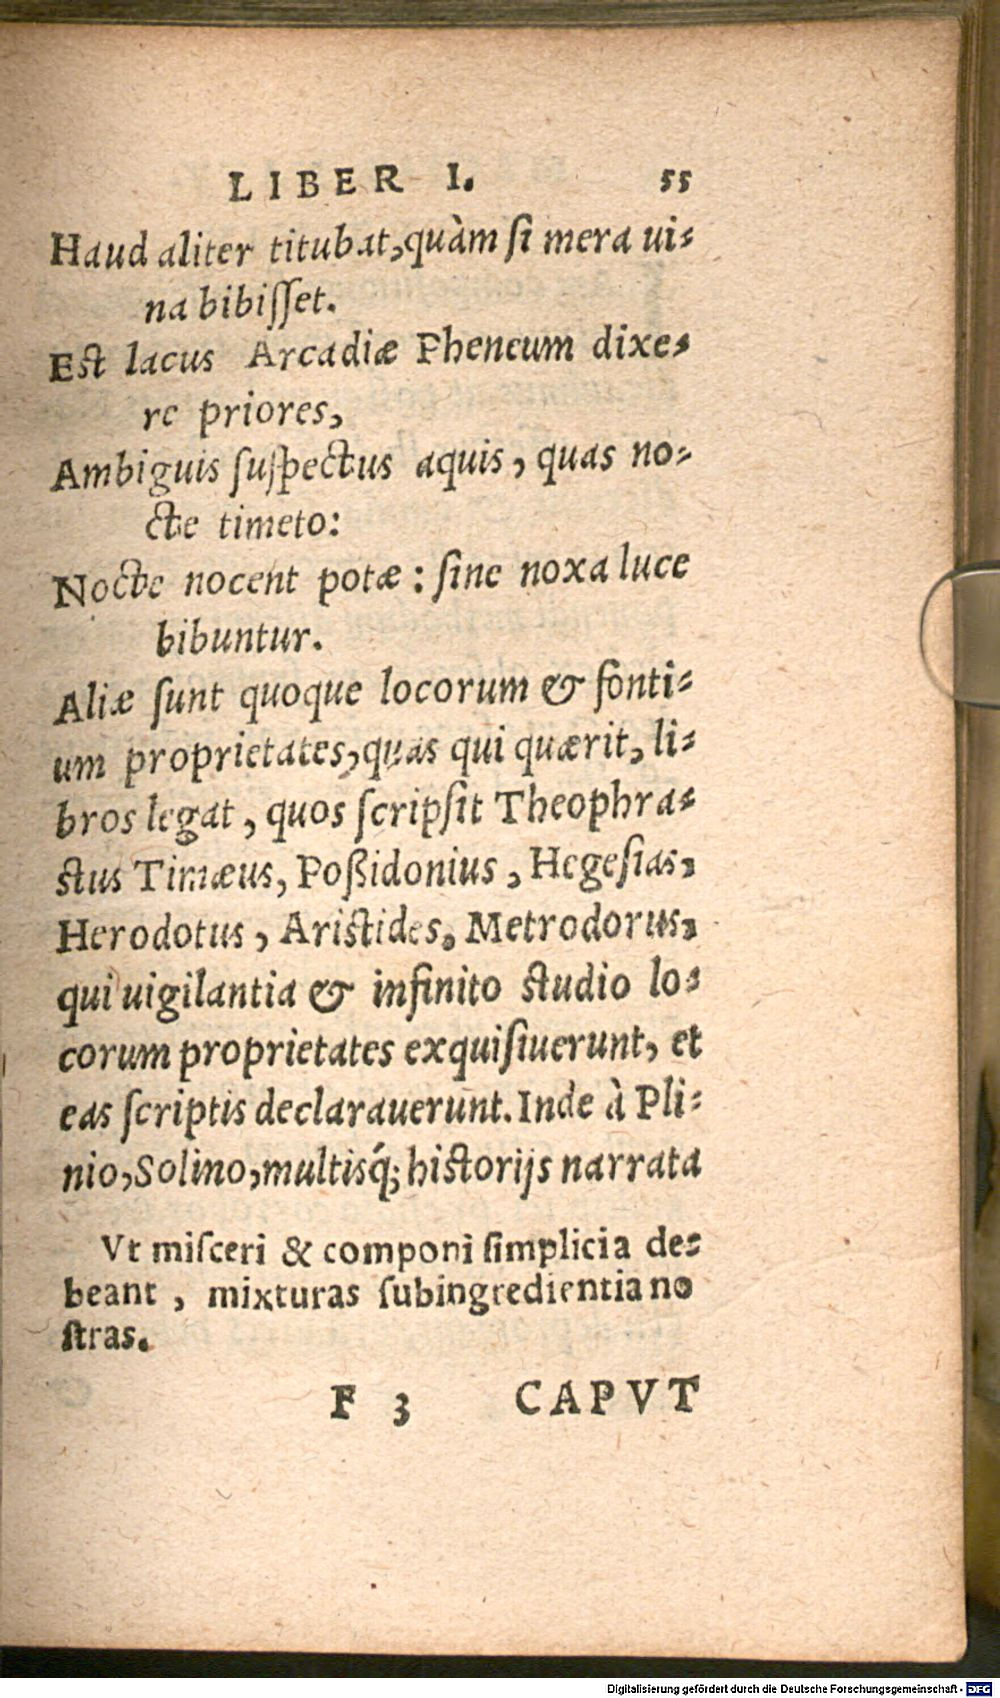 LIBER I. 55
Haud aliter titubat, quàm si mera ui-
na bibisset.
Est lacus Arcadiæ Pheneum dixe-
re priores,
Ambiguis suspectus aquis, quas no-
cte timeto:
Nocte nocent potæ: sine noxa luce
bibuntur.
Aliæ sunt quoque locorum & fonti-
um proprietates, quas qui quærit, li-
bros legat, quos scripsit Theophra-
stus Timæus, Poßidonius, Hegesias,
Herodotus, Aristides. Metrodorus,
qui uigilantia & infinito studio lo-
corum proprietates exquisiuerunt, et
eas scriptis declarauerunt. Inde à Pli-
nio, Solino, multisq́; historijs narrata
Vt misceri & componi simplicia de-
beant, mixturas subingredientia no
stras.
F 3 CAPVT
Digitalisierung gefördert durch die Deutsche Forschungsgemeinschaft - DFG